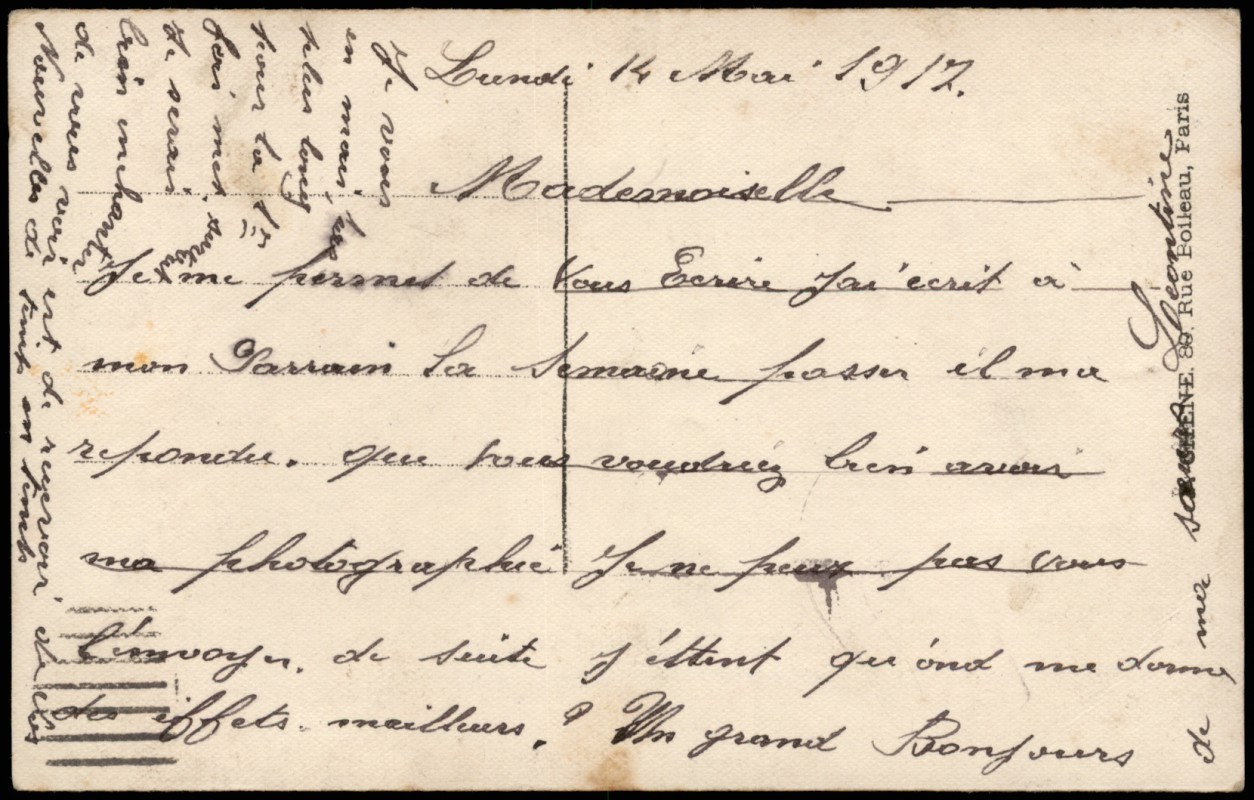 Lundi 14 Mai 1917.
Mademoiselle
Je me permet de Vous Ecrire J'ai écrit à
mon Parrain la Semaine passer il ma
repondu. que vous voudriéz bien avoir
ma photographie Je ne peux pas vous
L'envoyer. de suite J'éttent qu'ond me donne
des éffets mailleurs. Un grand Bonjours
de ma sœur Léontine
Je vous
en mai
plus long
pour la 1er
foi met surtout
Je serai
bien inchanter
de vous voir est de reçevoir de vos
Nouvelles de temps en temps
CHENE. 89. Rue Boileau, Paris